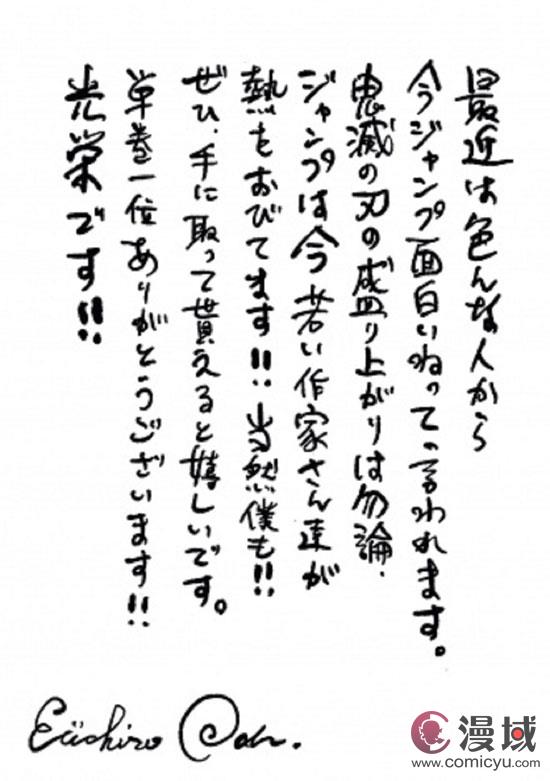 最近は色んな人から
今ジャンプ面白いねって言われます。
鬼滅の刃の盛り上がりは勿論、
ジャンプは今若い作家さん達が
熱をおびてます!!当然僕も!!
ぜひ、手に取って貰えると嬉しいです。
単巻一位ありがとうございます!!
光栄です!!
Eiichiro Oda.
漫域
www.comicyu.com